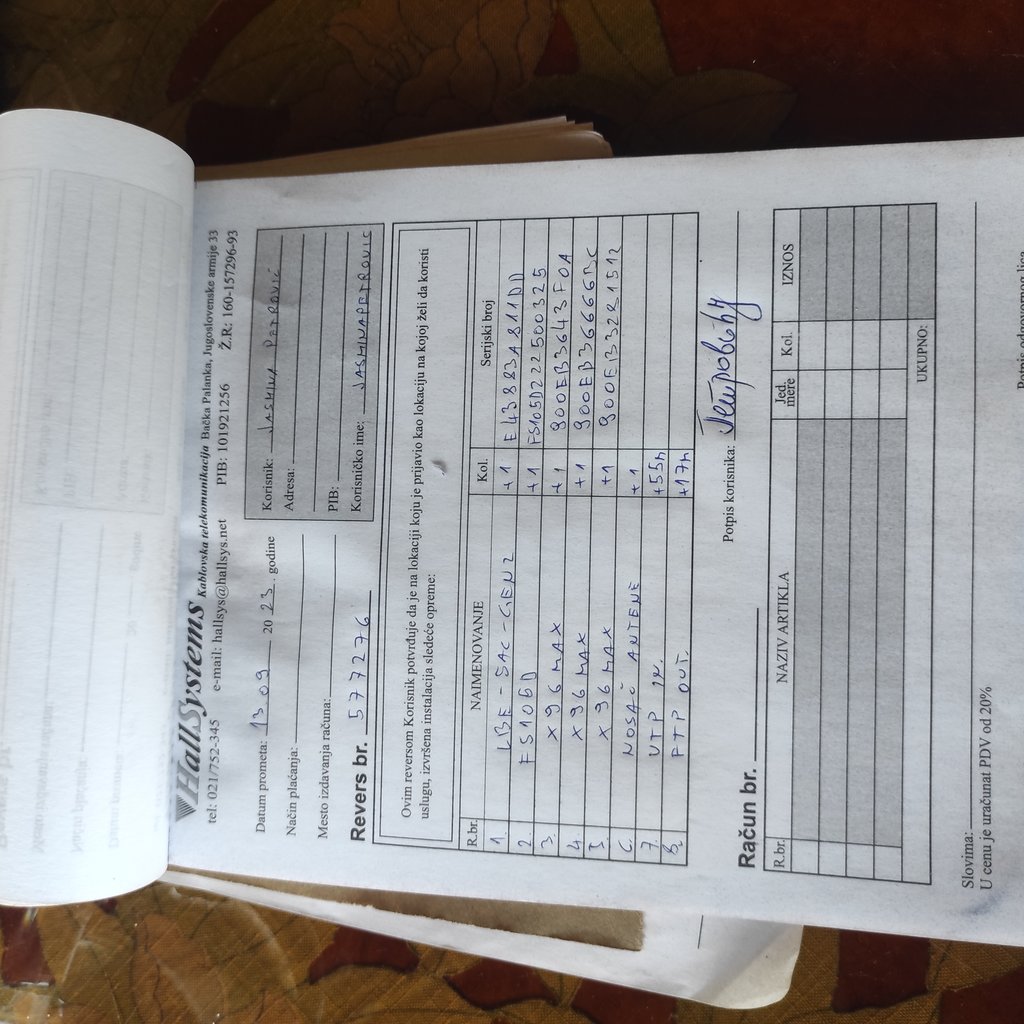 HallSystems Kablovska telekomunikacija Bačka Palanka, Jugoslovenske armije 33
tel: 021/752-345 e-mail: hallsys@hallsys.net PIB: 101921256 Ž.R: 160-157296-93
Datum prometa: 13.09 20 23. godine
Način plaćanja:
Mesto izdavanja računa:
Revers br. 577276
Korisnik: JASMINA PETROVIĆ
Adresa:
PIB:
Korisničko ime: JASMINAPETROVIC
Ovim reversom Korisnik potvrđuje da je na lokaciji koju je prijavio kao lokaciju na kojoj želi da koristi
uslugu, izvršena instalacija sledeće opreme:
R.br. NAIMENOVANJE Kol. Serijski broj
1. LBE-5AC-GEN2 +1 E43883A811DD
2. FS105D +1 FS105D222500325
3. X96 MAX +1 900EB3643F0A
4. X96 MAX +1
5. X96 MAX +1
6. NOSAČ ANTENE +1
7. UTP +55m
8. FTP OUT. +17m
Potpis korisnika: Петровић
Račun br.
R.br. NAZIV ARTIKLA Jed. mere Kol. IZNOS
UKUPNO:
Slovima:
U cenu je uračunat PDV od 20%
Potpis odgovornog lica